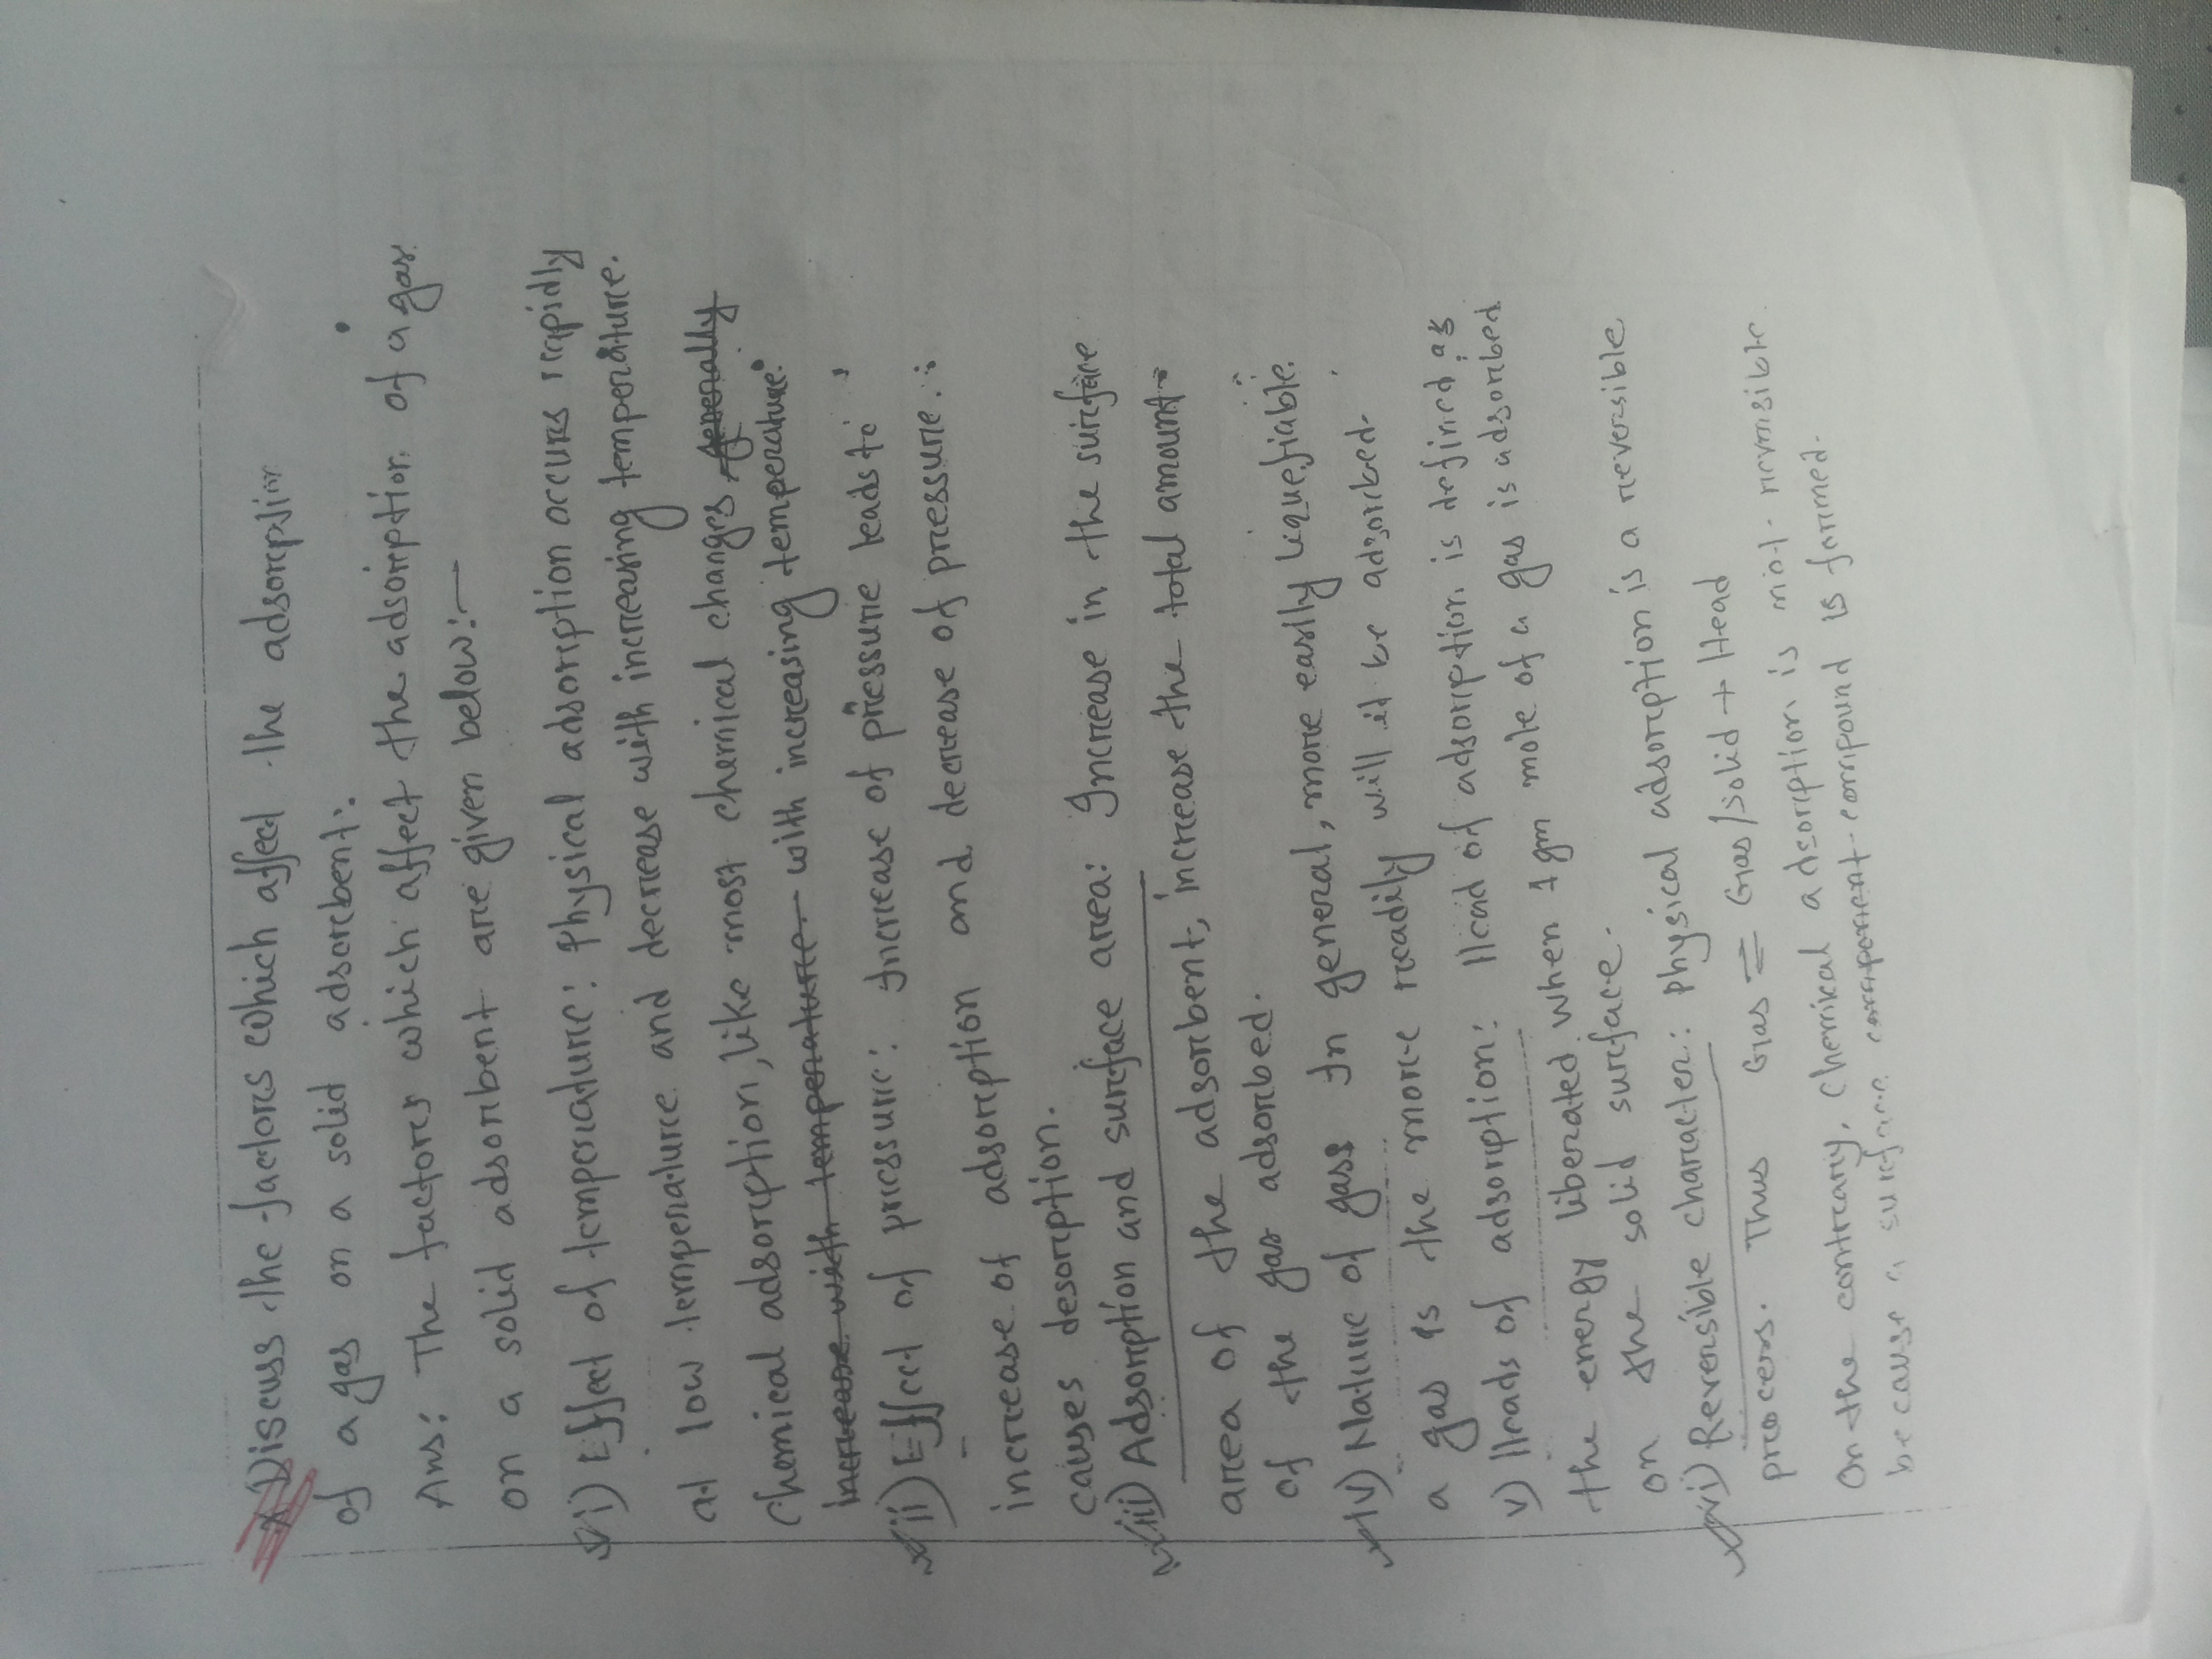 Discuss the factors which affect the adsorption
of a gas on a solid adsorbent:
Ans: The factors which affect the adsorption of a gas
on a solid adsorbent are given below:—
i) Effect of temperature: Physical adsorption occurs rapidly
at low temperature and decrease with increasing temperature.
Chemical adsorption, like most chemical changes generally
increase with temperature with increasing temperature.
ii) Effect of pressure: Increase of pressure leads to
increase of adsorption and decrease of pressure
causes desorption.
iii) Adsorption and surface area: Increase in the surface
area of the adsorbent, increase the total amount
of the gas adsorbed.
iv) Nature of gas: In general, more easily liquefiable
a gas is the more readily will it be adsorbed.
v) Heads of adsorption: Head of adsorption is defined as
the energy liberated when 1 gm mole of a gas is adsorbed
on the solid surface.
vi) Reversible character: physical adsorption is a reversible
process. Thus Gas ⇌ Gas/solid + Head
On the contrary, chemical adsorption is not reversible
because a surface component compound is formed.